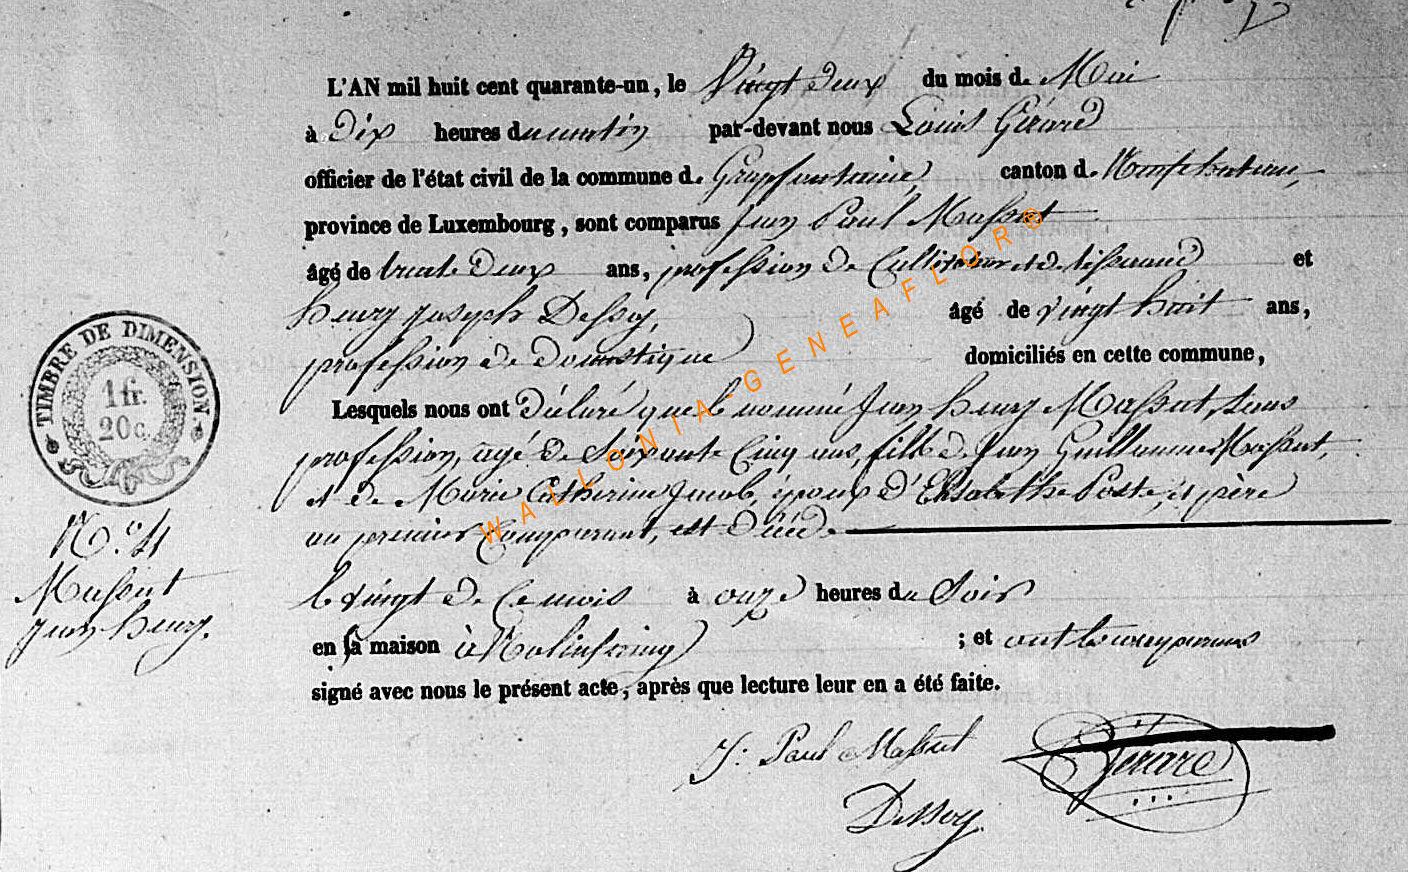 L'AN mil huit cent quarante-un, le Vingt deux du mois de Mai
à Dix heures du matin par-devant nous Louis Gérard
officier de l'état civil de la commune de Grapfontaine, canton de Neufchateau,
province de Luxembourg, sont comparus Jean Paul Massut
âgé de trente Deux ans, profession de Cultivateur et de tisserand et
henry joseph Dessoy, âgé de vingt huit ans,
profession de Domestique domiciliés en cette commune,
Lesquels nous ont Déclaré que le nommé Jean henry Massut, sans
profession, agé de Soixante Cinq ans, fils de Jean Guillaume Massut,
et de Marie Catherine Jacob, époux d'Elisabethe Poste, et père
au premier Comparant, est Décédé
le vingt de Ce mois à onze heures du Soir
en sa maison à Nolinfaing ; et ont les comparans
signé avec nous le présent acte, après que lecture leur en a été faite.
TIMBRE DE DIMENSION
1 fr.
20 c.
N.o 4
Massut
Jean henry.
J: Paul Massut
Gérard
Dessoy
WALLONIA-GENEAFLOR®